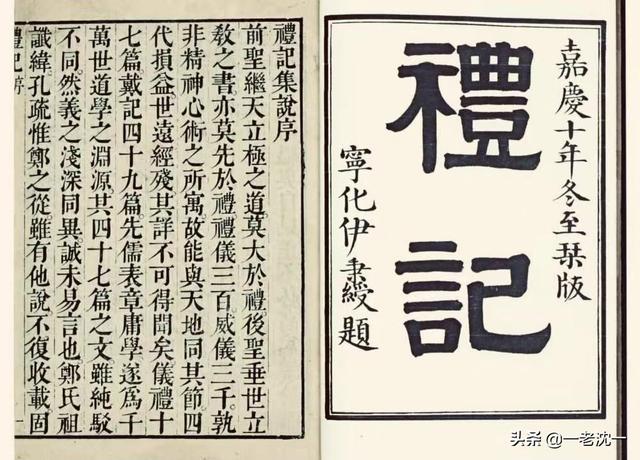 嘉慶十年冬至栞版
禮記
寧化伊秉綬題
禮記集說序
前聖繼天立極之道莫大於禮後聖垂世立
敎之書亦莫先於禮禮儀三百威儀三千孰
非精神心術之所寓故能與天地同其節四
代損益世遠經殘其詳不可得聞矣儀禮十
七篇戴記四十九篇先儒表章庸學遂爲千
萬世道學之淵源其四十七篇之文雖純駁
不同然義之淺深同異誠未易言也鄭氏祖
讖緯孔疏惟鄭之從雖有他說不復收載固
禮記序
一
头条 @一老沈一